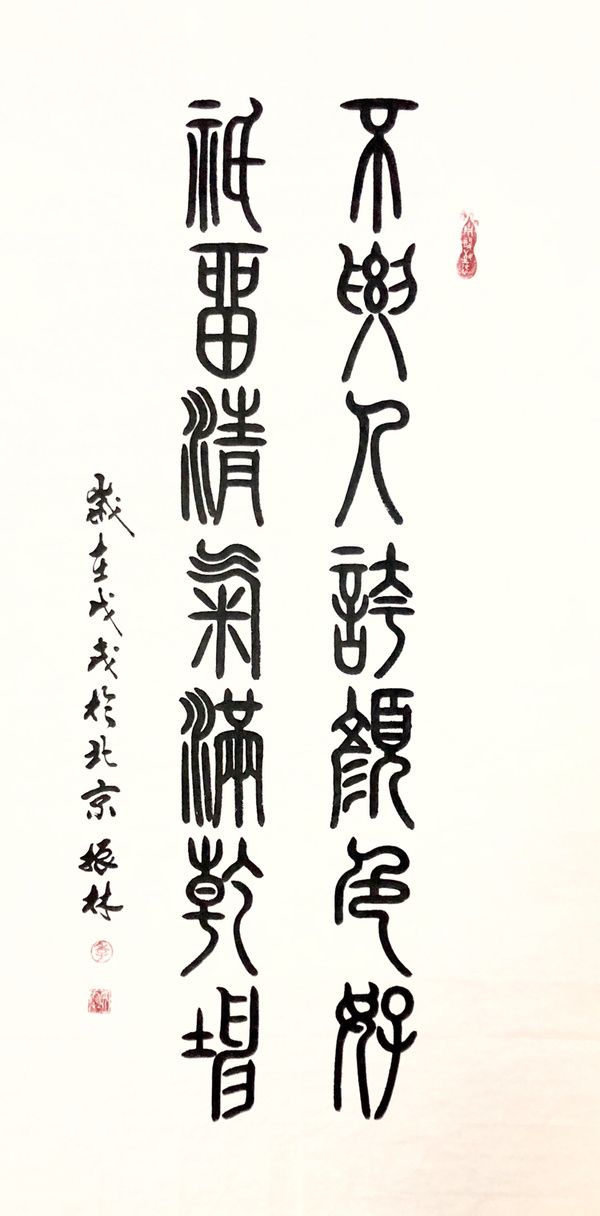 不與人誇顏色好
祇畱清氣滿乾坤
歲在戊戌於北京振林